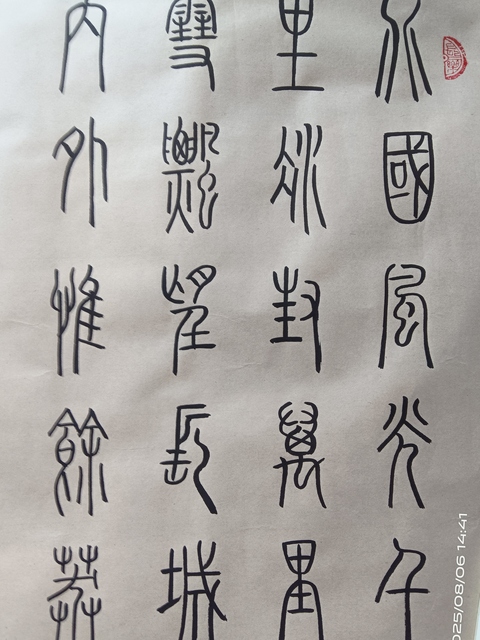 北國風光千
里冰封萬里
雪飄望長城
內外惟餘莽
025/08/06 14:41